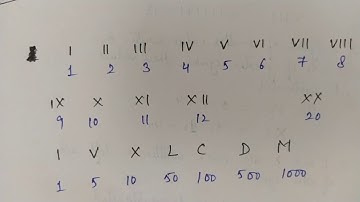 I II III IV V VI VII VIII
1 2 3 4 5 6 7 8
IX X XI XII XX
9 10 11 12 20
I V X L C D M
1 5 10 50 100 500 1000